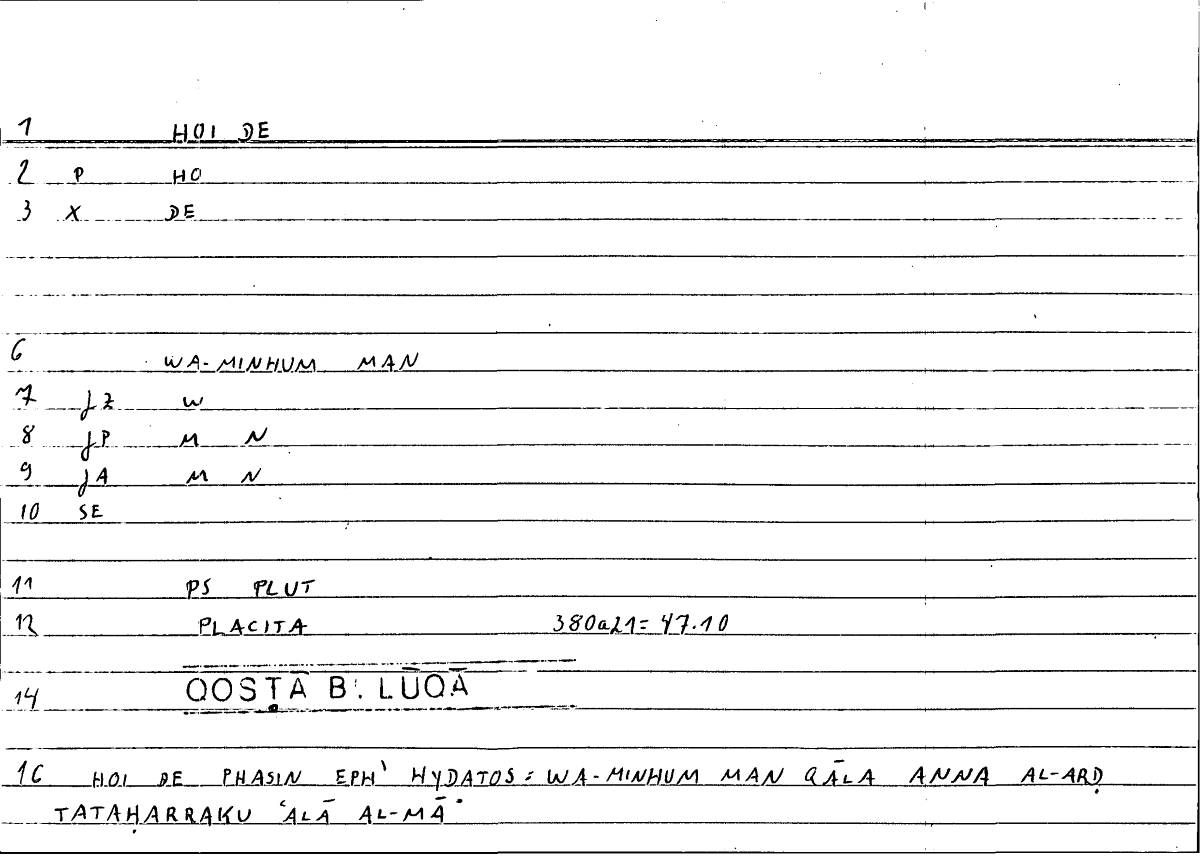 1 HOI DE
2 P HO
3 X DE
6 WA-MINHUM MAN
7 JZ W
8 JP M N
9 JA M N
10 SE
11 PS PLUT
12 PLACITA 380a21=47.10
14 QOSṬĀ B. LŪQĀ
16 HOI DE PHASIN EPH' HYDATOS = WA-MINHUM MAN QĀLA ANNA AL-ARḌ
TATAḤARRAKU ʿALĀ AL-MĀʾ